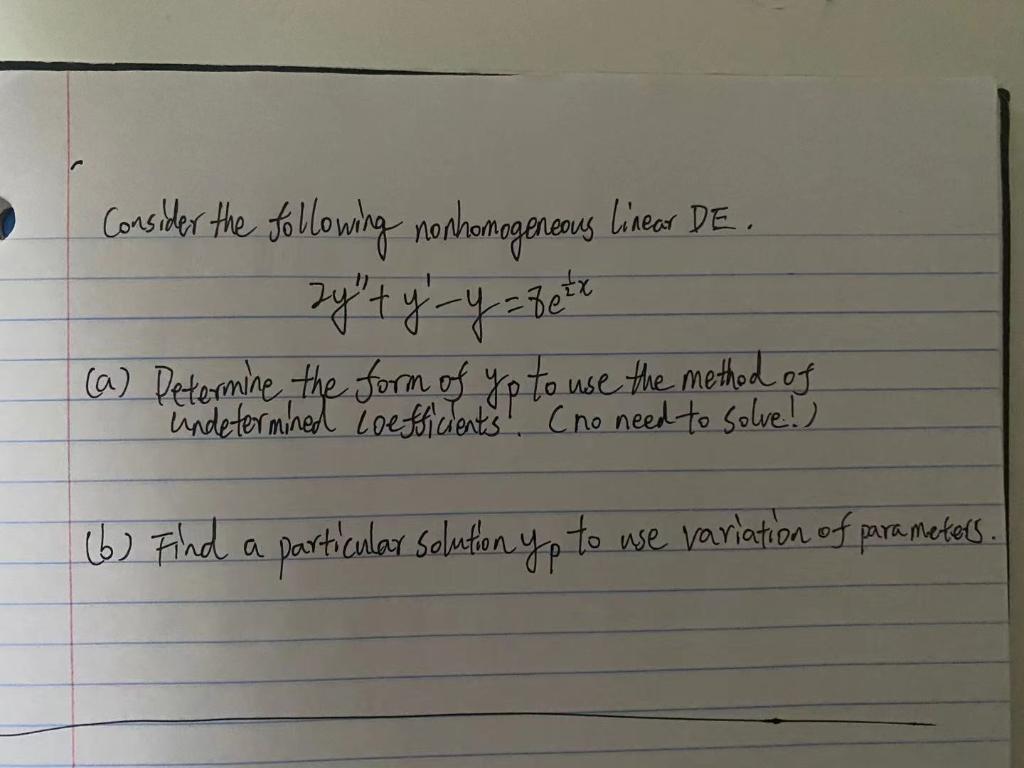 Consider the following nonhomogeneous linear DE.
2y" + y' - y = 8e^{\frac{1}{2}x}
(a) Determine the form of yₚ to use the method of
undetermined coefficients. (no need to solve!)
(b) Find a particular solution yₚ to use variation of parameters.